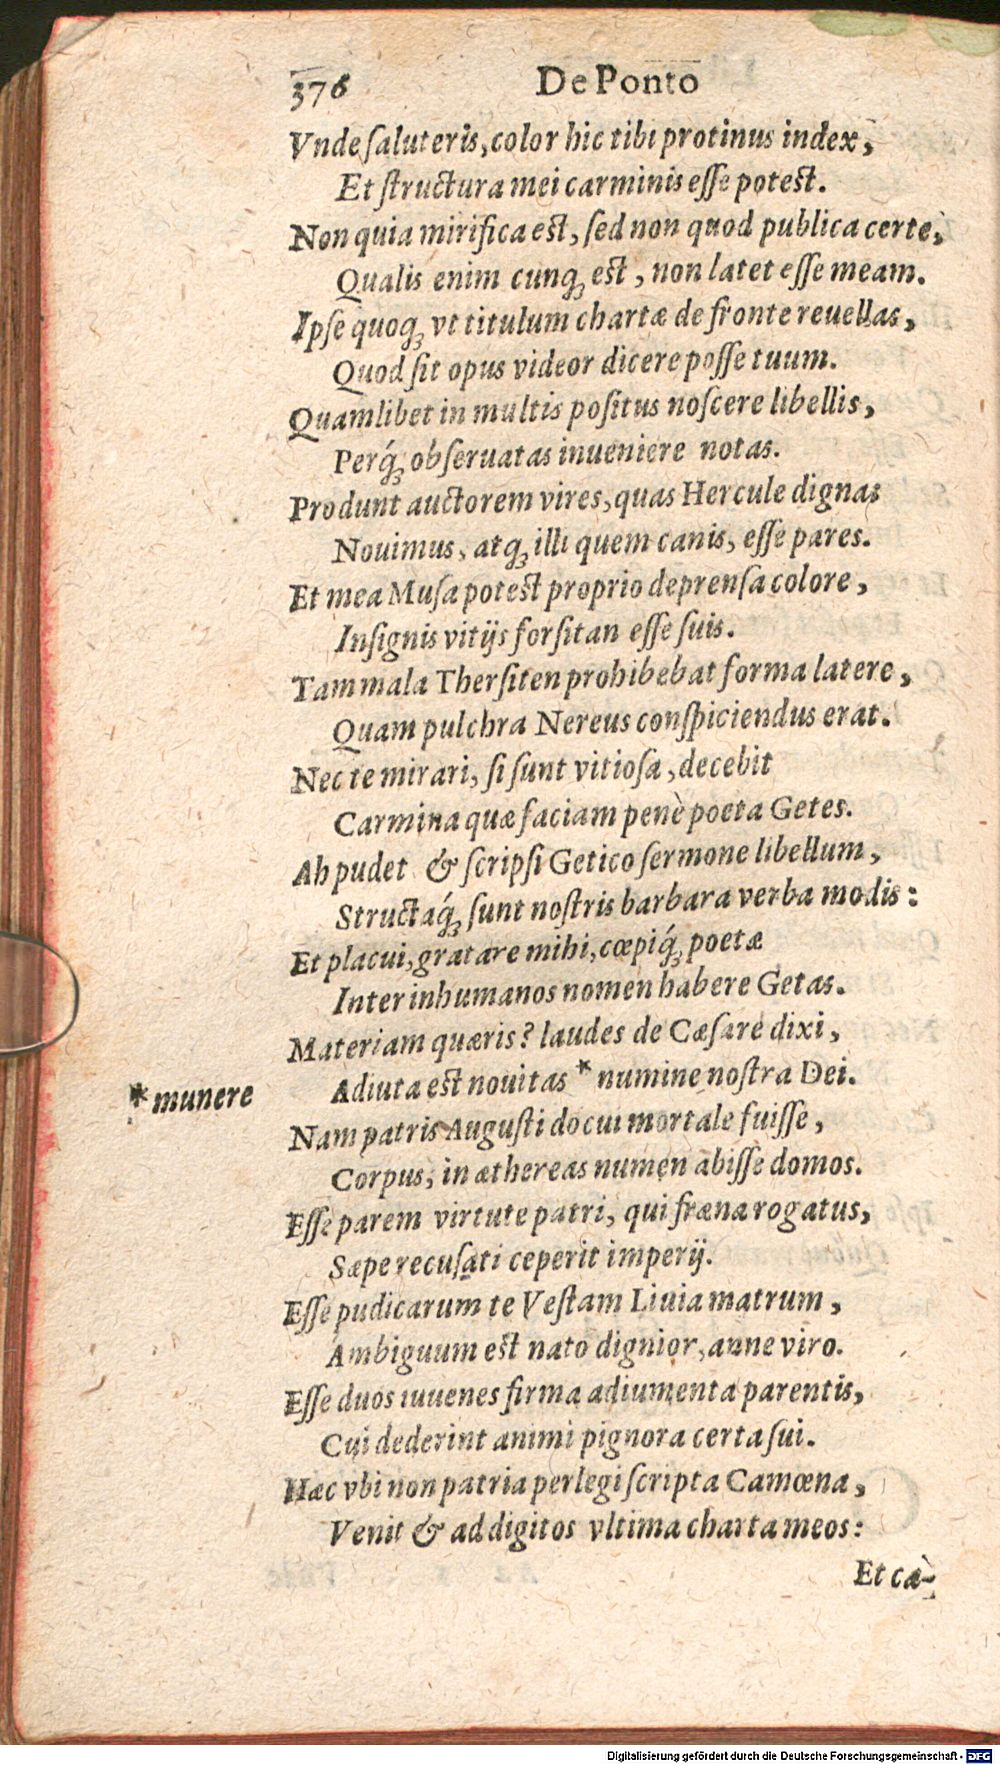 376 De Ponto
Vnde ſaluteris, color hic tibi protinus index,
Et ſtructura mei carminis eſſe poteſt.
Non quia mirifica eſt, ſed non quod publica certè,
Qualis enim cunq́ꝫ eſt, non latet eſſe meam.
Ipſe quoqꝫ vt titulum chartæ de fronte reuellas,
Quod ſit opus videor dicere poſſe tuum.
Quamlibet in multis poſitus noſcere libellis,
Perq́ꝫ obſeruatas inueniere notas.
Produnt auctorem vires, quas Hercule dignas
Nouimus, atqꝫ illi quem canis, eſſe pares.
Et mea Muſa poteſt proprio deprenſa colore,
Inſignis vitijs forſitan eſſe ſuis.
Tam mala Therſiten prohibebat forma latere,
Quam pulchra Nereus conſpiciendus erat.
Nec te mirari, ſi ſunt vitioſa, decebit
Carmina quæ faciam penè poeta Getes.
Ah pudet & ſcripſi Getico ſermone libellum,
Structaq́ꝫ ſunt noſtris barbara verba modis:
Et placui, gratare mihi, cœpiq́ꝫ poetæ
Inter inhumanos nomen habere Getas.
Materiam quæris? laudes de Cæſare dixi,
Adiuta eſt nouitas * numine noſtra Dei.
* munere
Nam patris Auguſti docui mortale fuiſſe,
Corpus, in æthereas numen abiſſe domos.
Eſſe parem virtute patri, qui fræna rogatus,
Sæpe recuſati ceperit imperij.
Eſſe pudicarum te Veſtam Liuia matrum,
Ambiguum eſt nato dignior, anne viro.
Eſſe duos iuuenes firma adiumenta parentis,
Cui dederint animi pignora certa ſui.
Hæc vbi non patria perlegi ſcripta Camœna,
Venit & ad digitos vltima charta meos:
Et cæ-
Digitalisierung gefördert durch die Deutsche Forschungsgemeinschaft - DFG